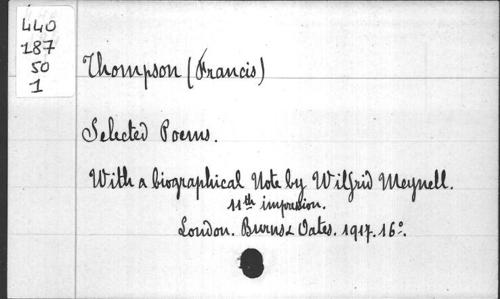 440
187
50
1
Thompson (Francis)
Selected Poems.
With a biographical Note by Wilfrid Meynell.
11th impression.
London. Burns & Oates. 1917. 16º.